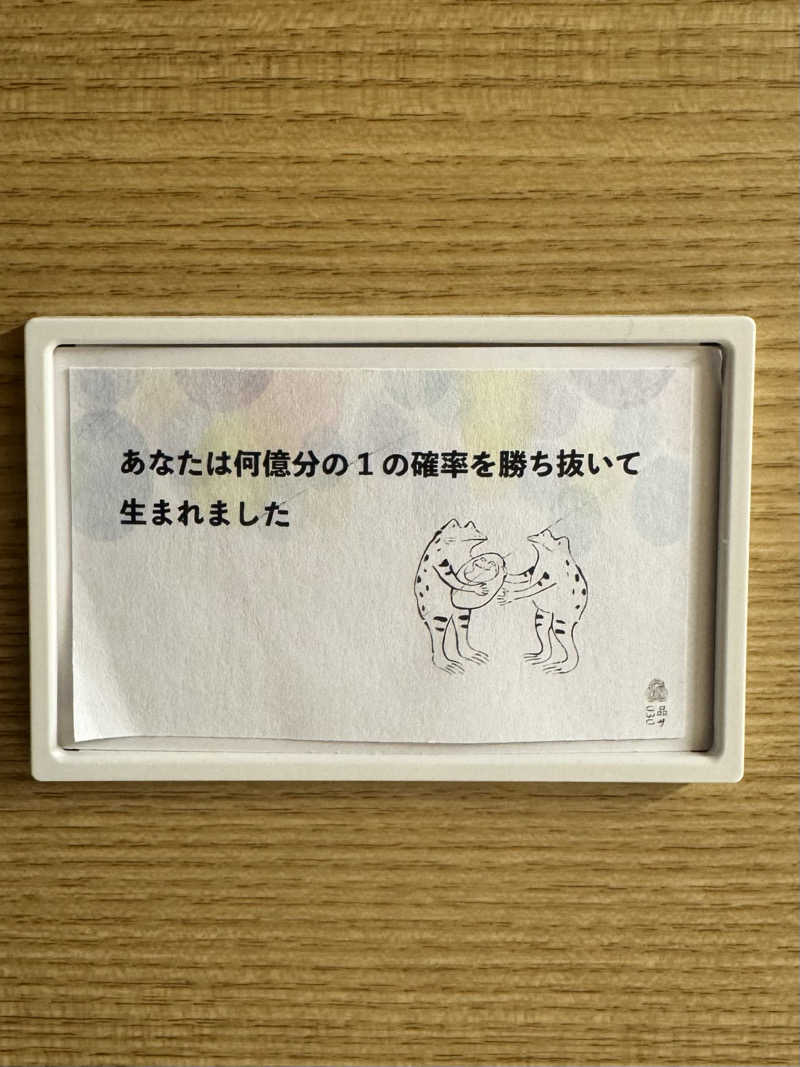 あなたは何億分の１の確率を勝ち抜いて
生まれました